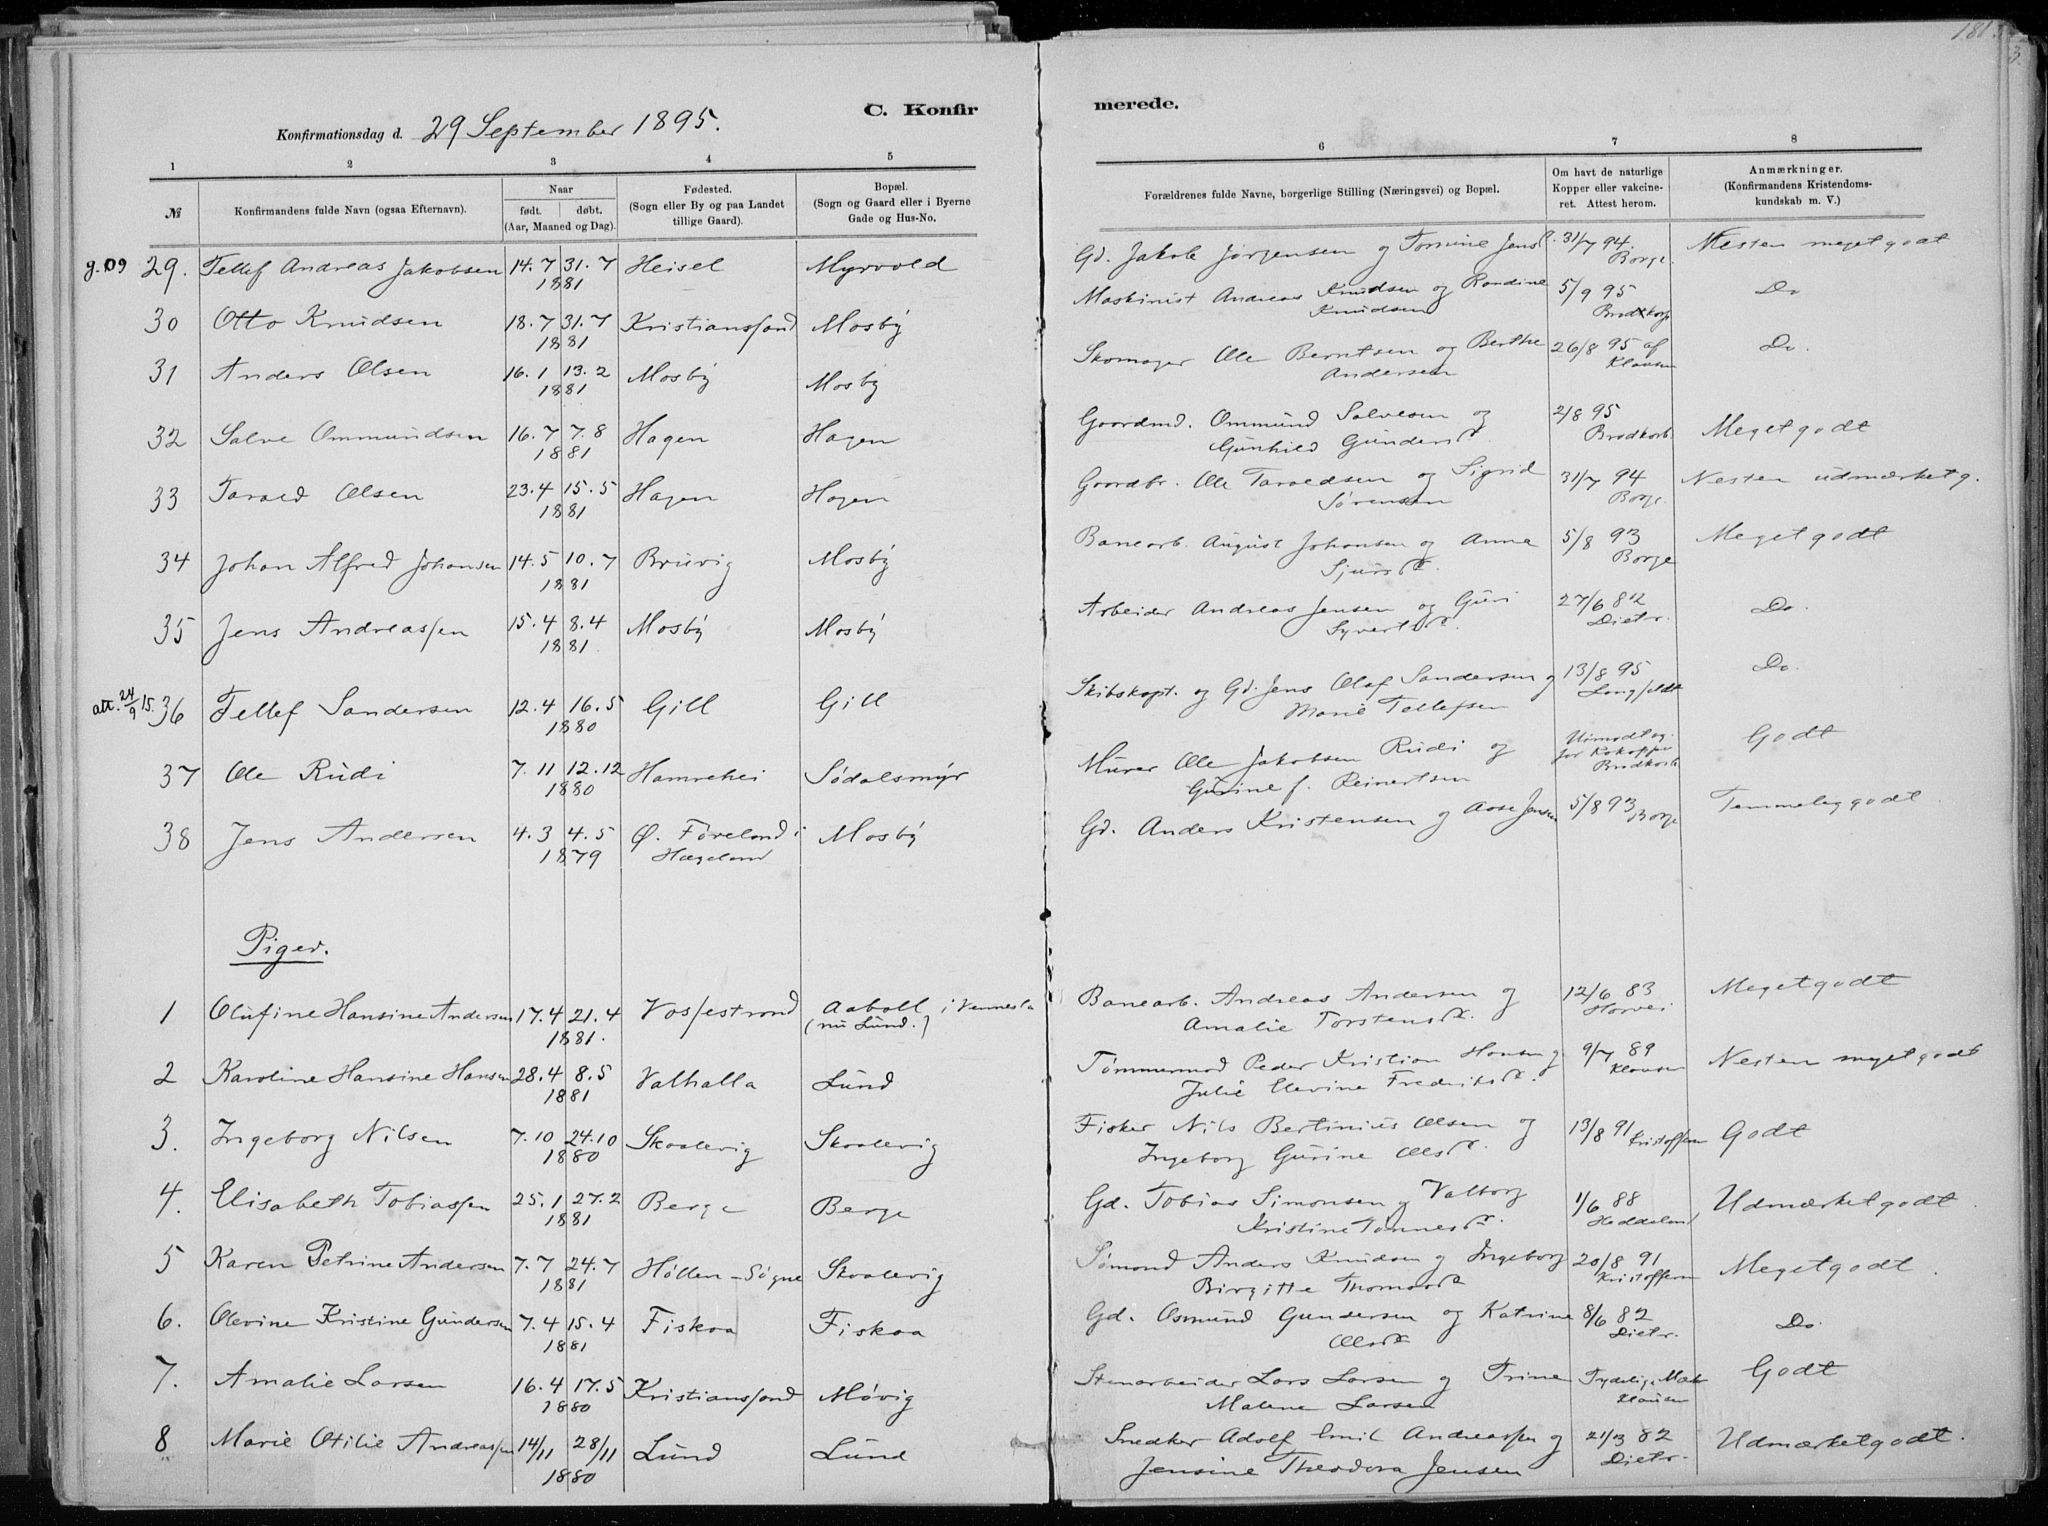 181.
C. Konfirmerede.
Konfirmationsdag d. 29 September 1895.
1 2 3 4 5 6 7 8
№
Konfirmandens fulde Navn (ogsaa Efternavn).
Naar
født. døbt.
(Aar, Maaned og Dag).
Fødested.
(Sogn eller By og paa Landet
tillige Gaard).
Bopæl.
(Sogn og Gaard eller i Byerne
Gade og Hus-No.
Forældrenes fulde Navne, borgerlige Stilling (Næringsvei) og Bopæl.
Om havt de naturlige
Kopper eller vakcine-
ret. Attest herom.
Anmærkninger.
(Konfirmandens Kristendoms-
kundskab m. V.)
g. 09 29. Tellef Andreas Jakobsen 14.7 31.7 Heisel Myrvold Gd. Jakob Jørgensen og Tomine Jens 31/7 94. Nesten meget godt
1881 Borge.
30 Otto Knudsen 18.7 31.7 Kristianssand Mosby Maskinist Andreas Knudsen og Randine 5/9 95 Do
1881 Knudsen Brodkorb
31 Anders Olsen 16.1 13.2 Mosby Mosby Skomager Ole Berntsen og Berthe 26/8 95 af Do.
1881 Andersen Klausen
32 Salve Ommundsen 16.7 7.8 Hagen Hagen Gaardmd. Ommund Salvesen og 2/8 95 Meget godt
1881 Gunhild Gundersd. Brodkorb.
33 Tarald Olsen 23.4 15.5 Hagen Hagen Gaardbr. Ole Taraldsen og Sigrid 31/7 94 Nesten udmærket g.
1881 Sørensen Borge.
34 Johan Alfred Johansen 14.5 10.7 Bruvig Mosby Banearb. August Johansen og Anna 5/8 93 Meget godt
1881 Sjursd. Borge
35 Jens Andreassen 15.4 8.4 Mosby Mosby Arbeider Andreas Jensen og Guri 27/6 82 Do.
1881. Syvertsd. Dietr.
att. 24/9 15. 36 Tellef Sandersen 12.4 16.5 Gill Gill Skibskapt. og Gd. Jens Olaf Sandersen og 13/8 95 Do.
1880 Marie Tellefsen Langfeldt
37 Ole Rudi 7.11 12.12 Hamrehei Sødalsmyr Murer Ole Jakobsen Rudi og Uimodtag. Godt
1880 Gurine f. Reinertsen for Kokopper Brodkorb
38 Jens Andersen 4.3 4.5 Ø. Føreland i Mosby Gd. Anders Kristensen og Aase Jensen 5/8 93 Borge Temmelig godt.
1879 Hægeland
Piger.
1 Olufine Hansine Andersen 17.4 21.4 Vossestrand Aaboll i Vennesla Banearb. Andreas Andersen og 12/6 83 Meget godt
1881. (nu Lund.) Amalie Torstensd. Horvei
2 Karoline Hansine Hansen 28.4 8.5 Valhalla Lund Tømmermd Peder Kristian Hansen og 9/7 89 Nesten meget godt
1881 Julie Elevine Fredriksd. Klausen
3. Ingeborg Nilsen 7.10 24.10 Skaalevig Skaalevig Fisker Nils Bertinius Olsen og 13/8 91 Kristoffersen Godt
1880 Ingeborg Gurine Olsd.
4. Elisabeth Tobiassen 25.1 27.2 Berge Berge Gd. Tobias Simonsen og Valborg 1/6 88 Udmærket godt.
1881 Kristine Tønnesd. Heddeland
5 Karen Petrine Andersen 7.7 24.7 Høllen – Søgne Skaalevig Sømand Anders Knudsen og Ingeborg 20/8 91 Meget godt.
1881 Birgitte Thomasd. Kristoffersen
6. Olevine Kristine Gundersen 7.4 15.4 Fiskaa Fiskaa Gd. Osmund Gundersen og Katrine 8/6 82 Do.
1881 Olsd. Dietr.
7. Amalie Larsen 16.4 17.5 Kristianssand Møvig Stenarbeider Lars Larsen og Trine Tydelig Mærk Godt
1880 Malene Larsen Klausen
8 Marie Otilie Andreassen 14/11 28/11 Lund Lund Snedker Adolf Emil Andreassen og 21/3 82 Udmærket godt.
1880 Jensine Theodora Jensen Dietr.